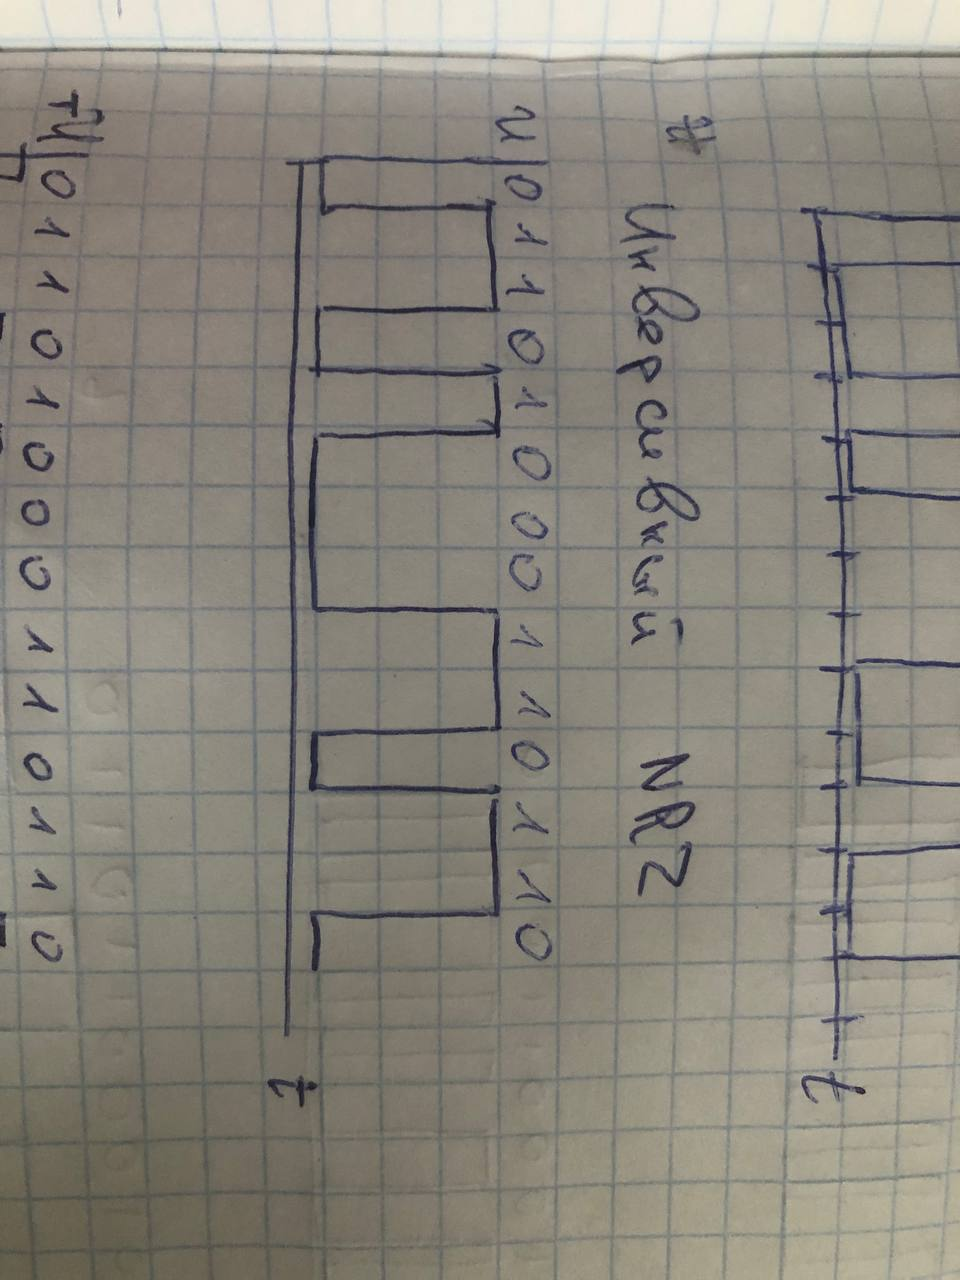 t
# Инверсивный NRZ
U 0 1 1 0 1 0 0 0 1 1 0 1 1 0
t
+U 0 1 1 0 1 0 0 0 1 1 0 1 1 0